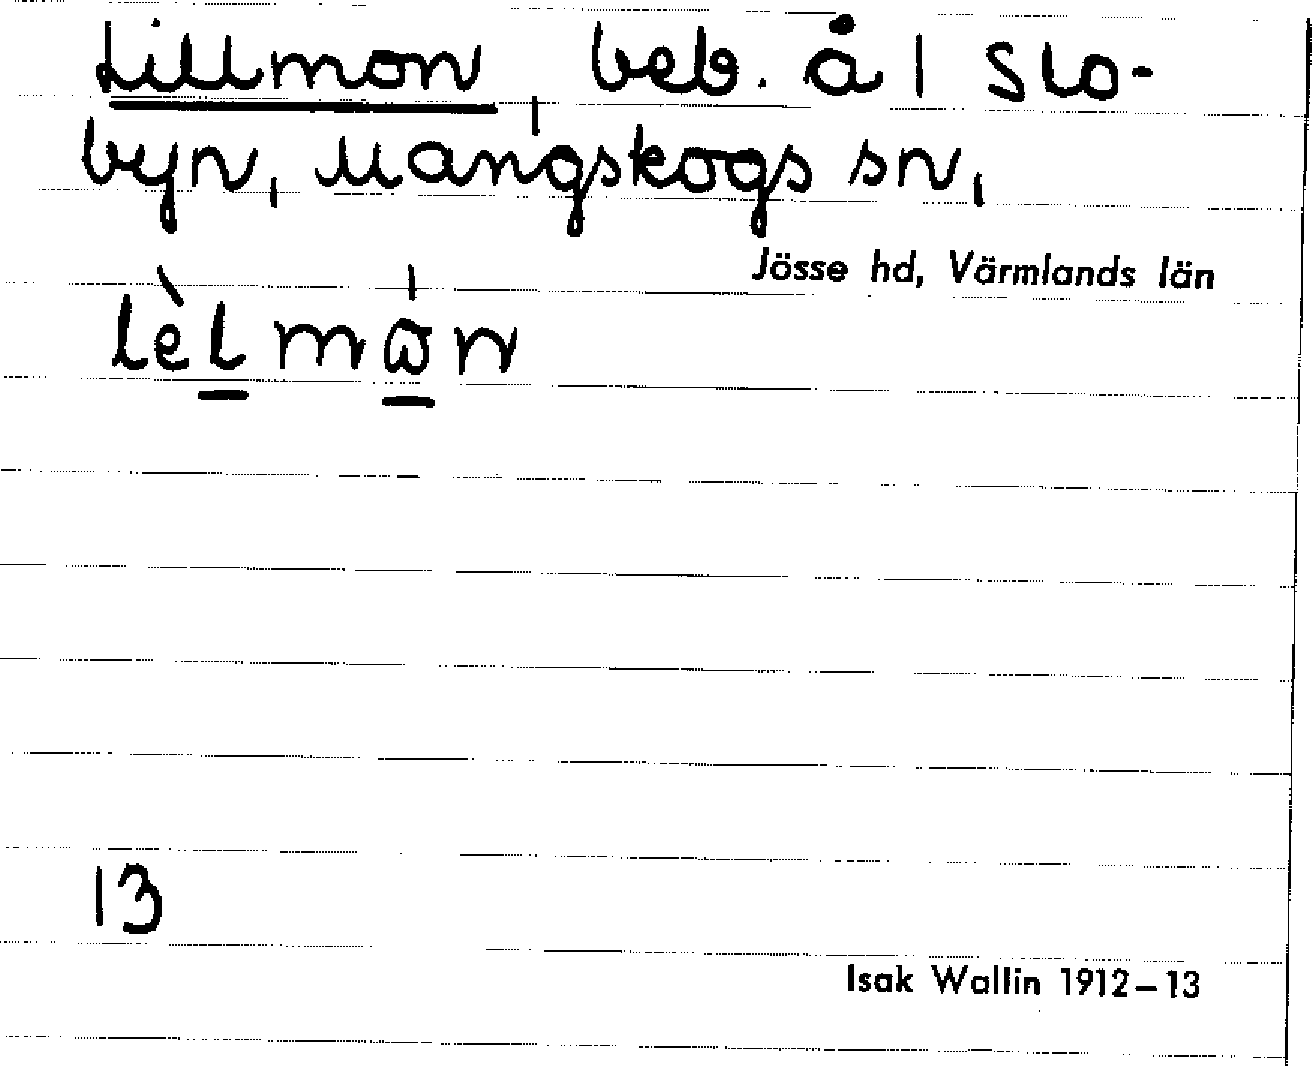 Lillmon, beb. å 1 Slo-
byn, Mangskogs sn,
Jösse hd, Värmlands län
lèlmån
13
Isak Wallin 1912–13